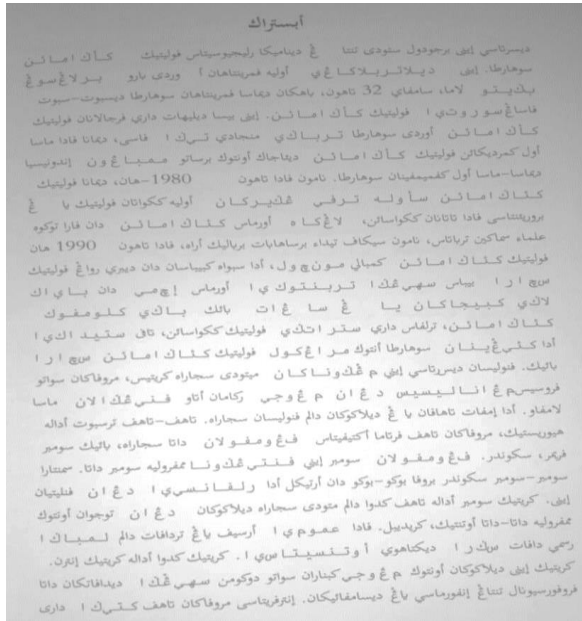 أبستراك
ديسرتاسي إيني برجودول ستودي تنتاڠ ديناميكا رليجيوسيتاس فوليتيك كأكامائن
سوهارطا. إيني ديلاتربلاكاڠي أوليه فمرينتاهن اوردي بارو يڠ برلاڠسوڠ
بڬيتو لاما، سامفاي 32 تاهون، باهكان دماسا فمرينتاهن سوهارطا ديسبوت-سبوت
فاساڠ سوروتي فوليتيك كأكامائن. إيني بيسا ديليهات داري فرجالانان فوليتيك
كأكامائن أوردي سوهارطا ترباكي منجادي تيكا فاسي، دمانا فادا ماسا
أول كمرديكائن فوليتيك كأكامائن ديتاجاك أونتوك برساتو ممباڠون إندونيسيا
دماسا-ماسا أول كفميمفينان سوهارطا. نامون فادا تاهون 1980-هان، دمانا فوليتيك
كأكامائن سأوله ترفيڠكيركان أوليه ككواتان فوليتيك ياڠ
برورينتاسي فادا تاتانان ككواسائن، لاڠكاه أورماس كأكامائن دان فارا توكوه
علماء سماكين ترباتس، نامون سيكاف تيداء برساهابات برباليك أراه، فادا تاهون 1990 هان
فوليتيك كأكامائن كمبالي مونچول، أدا سبواه كبيباسان دان ديبري رواڠ فوليتيك
سچارا بيباس سهيڠكا تربنتوكي أورماس إچمي دان باياك
لاكي كبيجاكان ياڠ ساڠات بائك باكي كلومفوك
كأكامائن، ترلفاس داري ستراتكي فوليتيك ككواسائن، تافي ستيداكي
أدا كئيڠينان سوهارطا أنتوك مراڠكول فوليتيك كأكامائن سچارا
بائيك. فنوليسان ديسرتاسي إيني مڠكوناكان ميتودي سجاراه كريتيس، مروفاكان سواتو
فروسيس مڠاناليسيس دڠان مڠوجي ركامان أتاو فنيڠكالان ماسا
لامفاو. أدا إمفات تاهافان ياڠ ديلاكوكان دالم فنوليسان سجاراه. تاهف-تاهف ترسبوت أداله
هيوريستيك، مروفاكان تاهف فرتاما أكتيفيتاس فڠومفولان داتا سجاراه، بائيك سومبر
فريمر، سكوندر. فڠومفولان سومبر إيني فنتيڠ كونا ممفروليه سومبر داتا. سمنتارا
سومبر-سومبر سكوندر بروفا بوكو-بوكو دان أرتيكل أدا رلفانسي دڠان فنليتيان
إيني. كريتيك سومبر أداله تاهف كدوا دالم متودي سجاراه ديلاكوكان دڠان توجوان أونتوك
ممفروليه داتا-داتا أوتنتيك، كريديبل. فادا عمومي أرسيف ياڠ تردافات دالم لمباكا
رسمي دافات سكرا ديكتاهوي أوتنسيتاسي. كريتيك كدوا أداله كريتيك إنترن.
كريتيك إيني ديلاكوكان أونتوك مڠوجي كبناران سواتو دوكومن سهيڠكا ديدافاتكان داتا
فروفورسيونال تنتاڠ إنفورماسي ياڠ ديسامفائيكان. إنترفريتاسي مروفاكان تاهف كتيكا داري